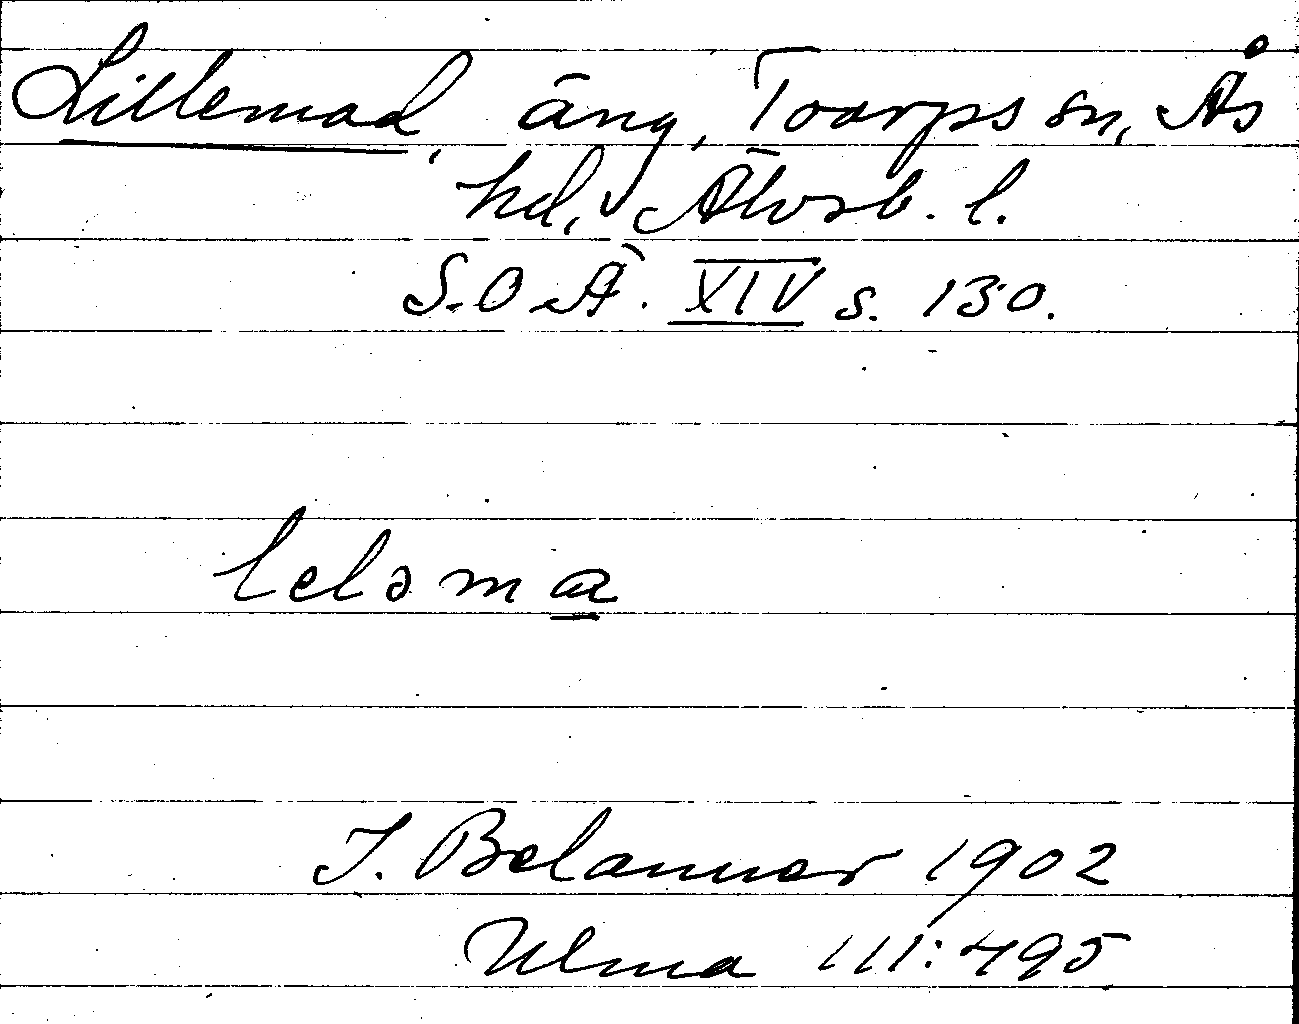 Lillemad, äng, Toarps sn, Ås
hd, Älvsb. l.
S.O.Ä. XIV s. 130.
leləma
J. Belanner 1902
Ulma 111:495